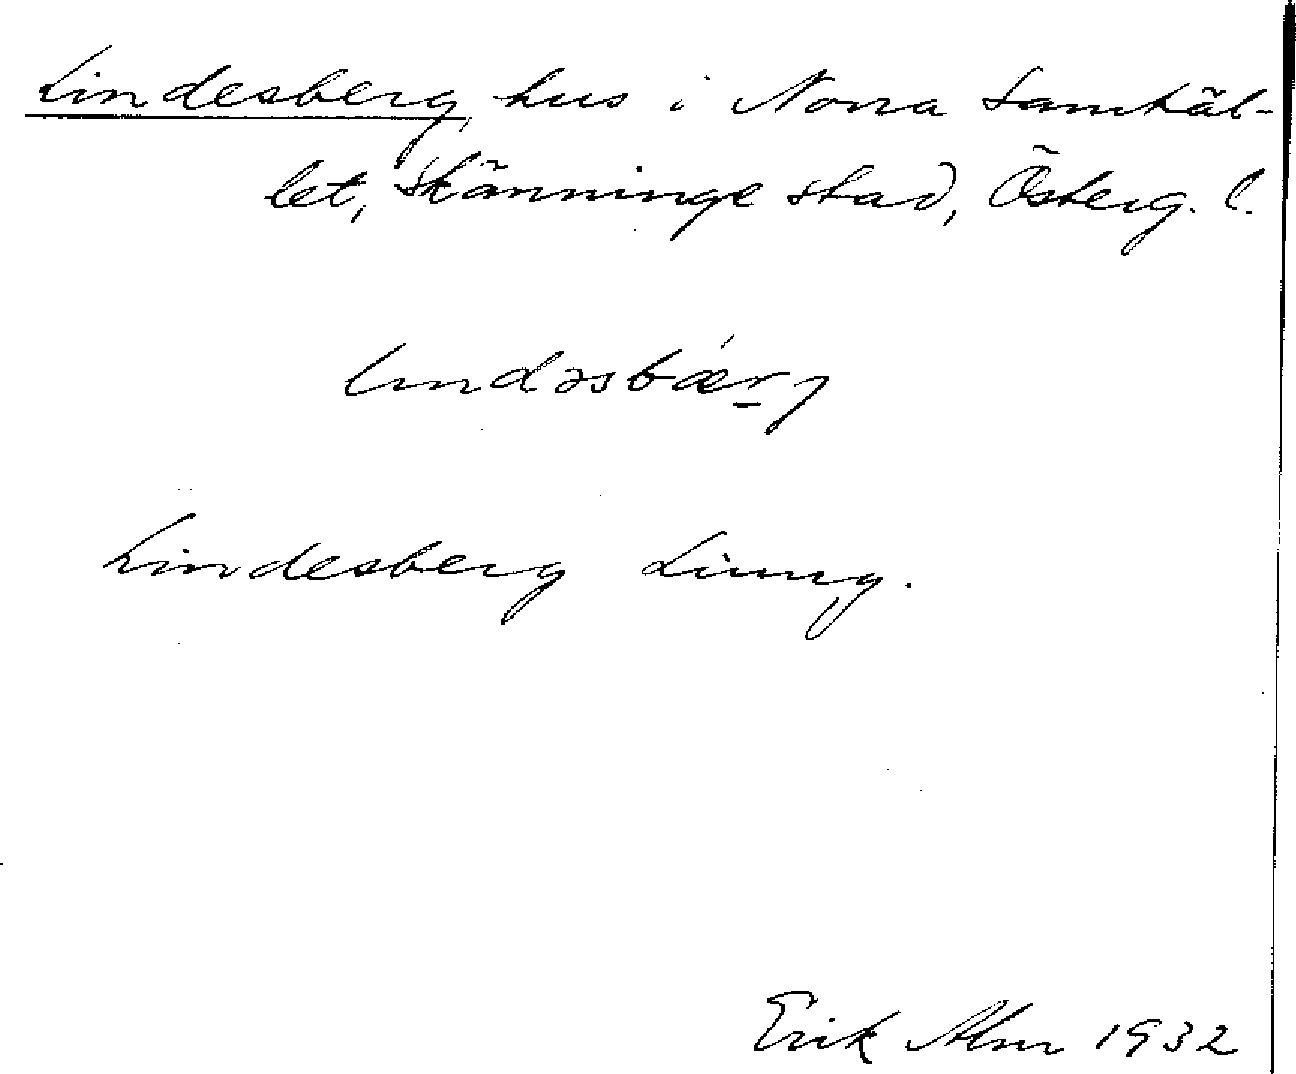 Lindesberg, hus i Norra Samhäl-
let, Skänninge stad, Österg. l.
lindəsbær̠j
Lindesberg
Erik Alm 1932